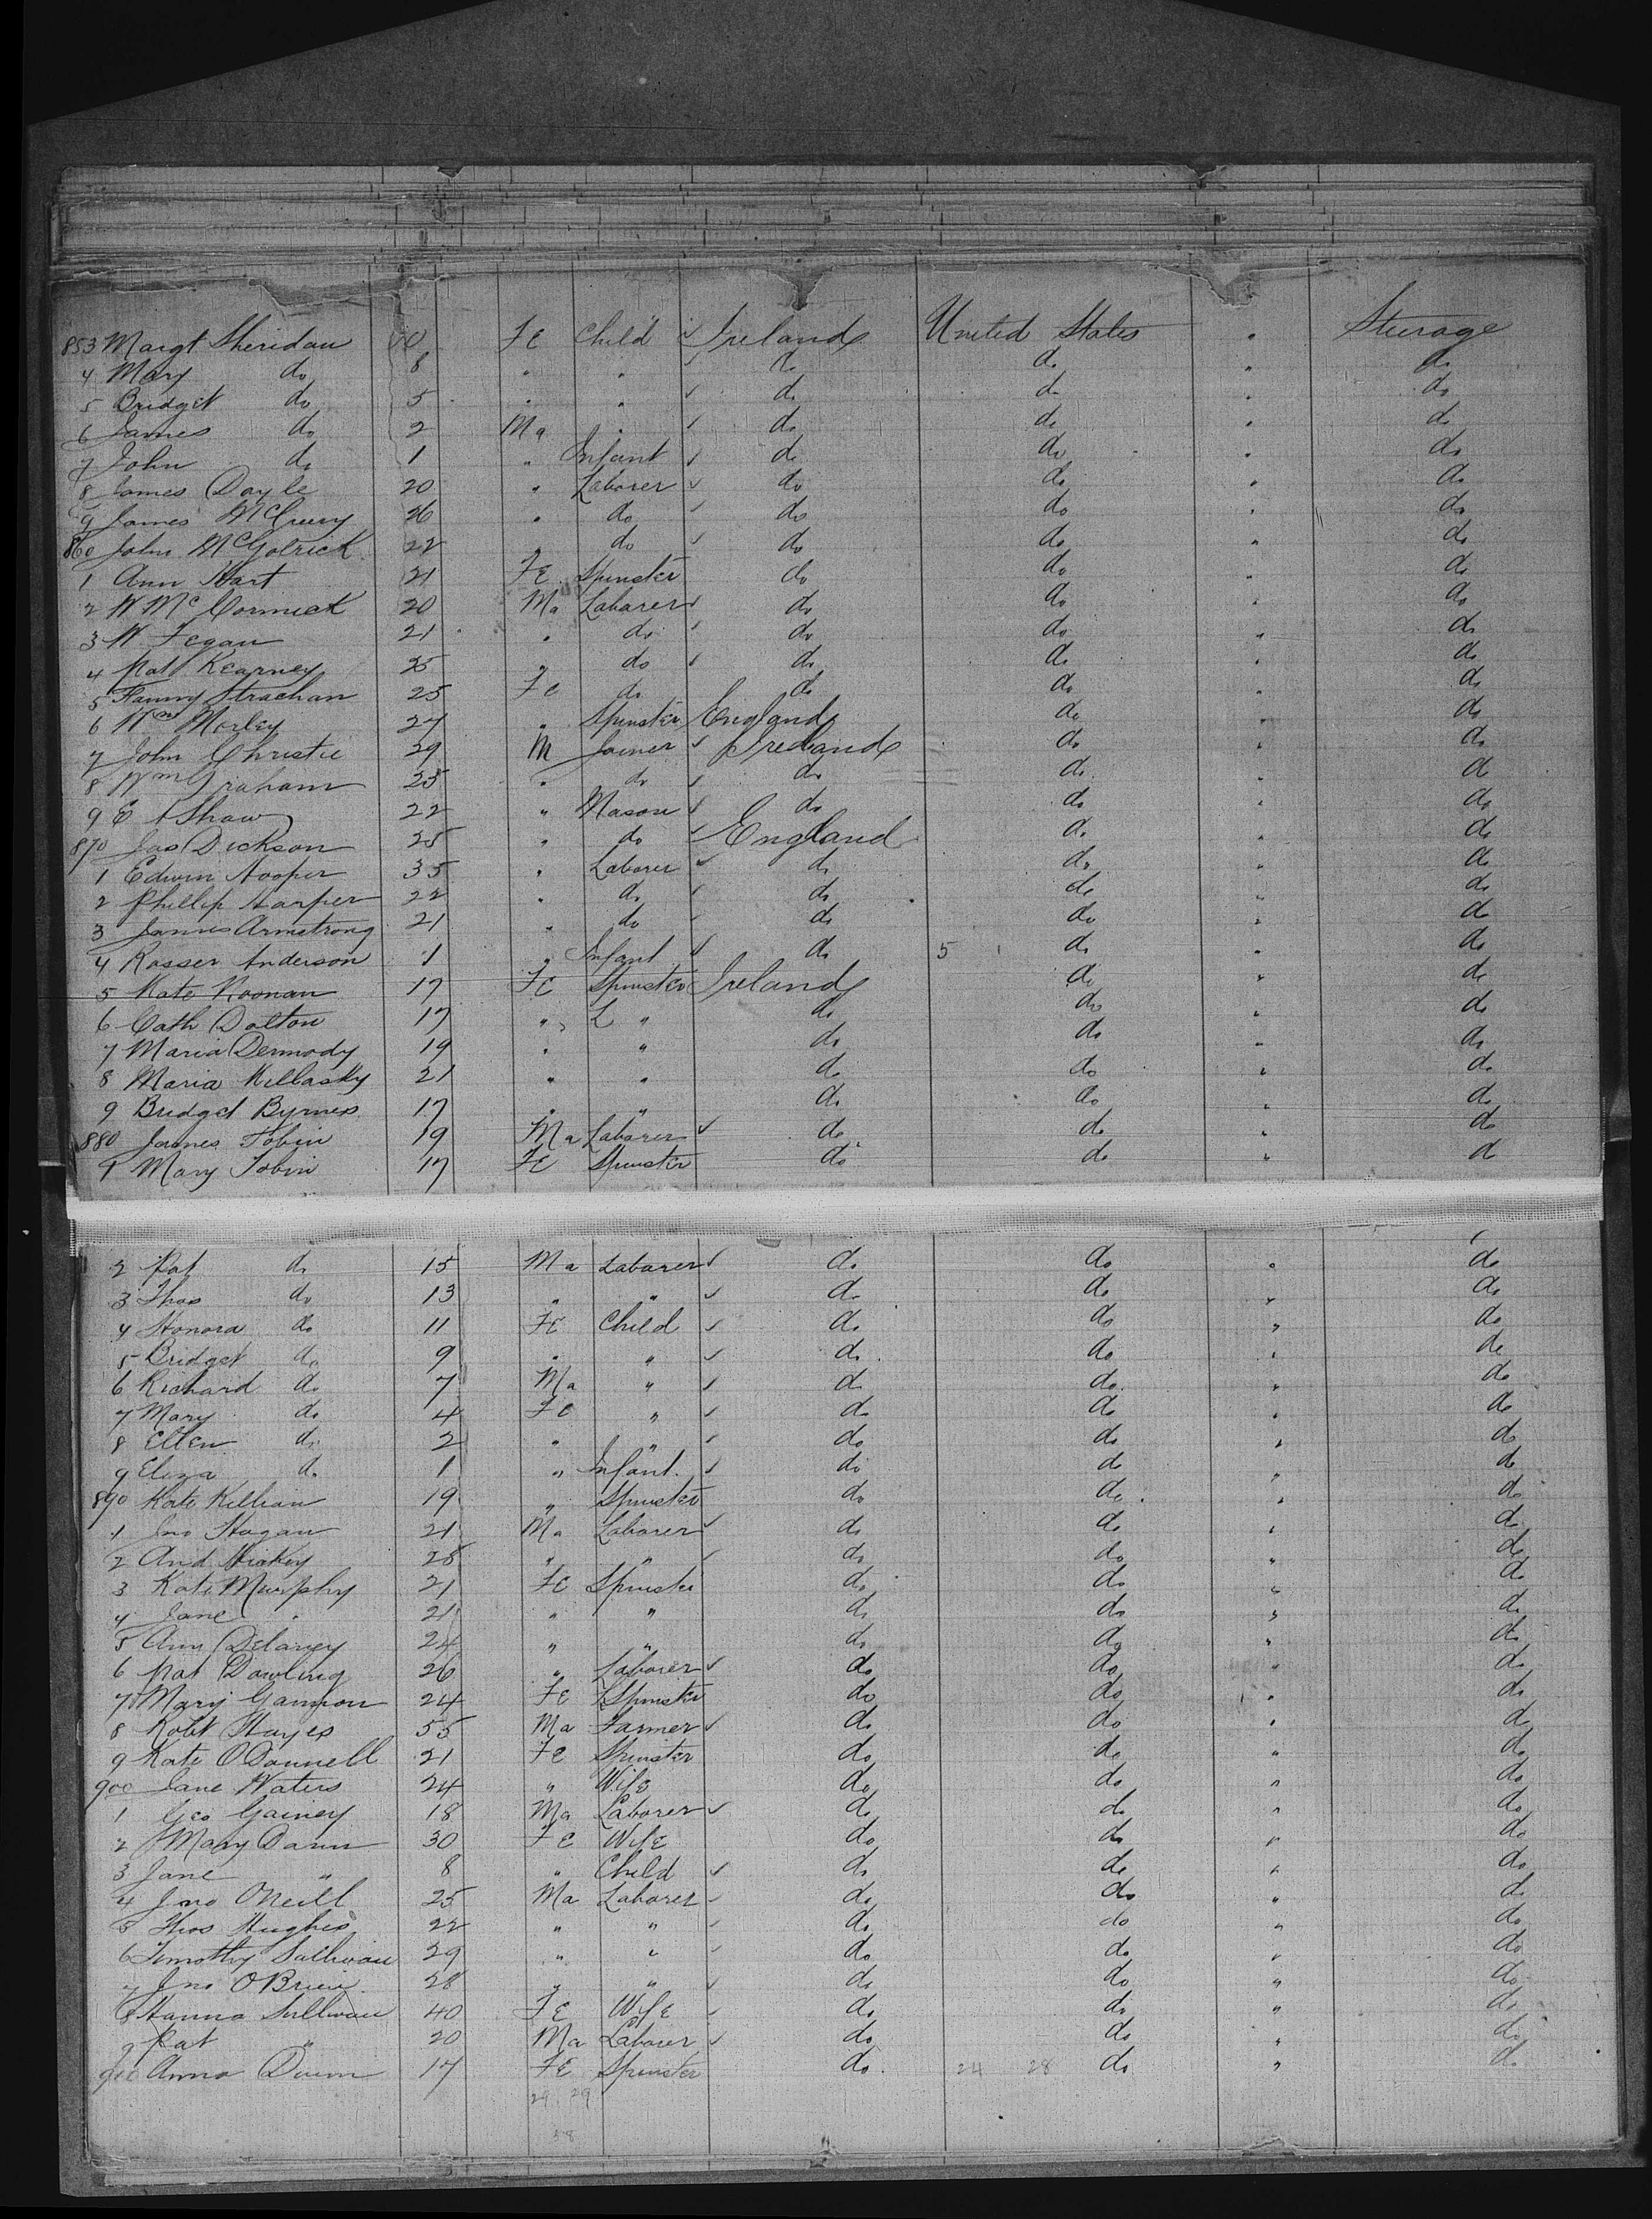 853 Margt Sheridan 10 FE Child ✓ Ireland United States " Steerage
4 Mary do 8 " " ✓ do do " do
5 Bridget do 5 " " ✓ do do " do
6 James do 2 Ma " ✓ do do " do
7 John do 1 " Infant ✓ do do " do
8 James Doyle 20 " Laborer ✓ do do " do
9 James 26 " do ✓ do do " do
860 John McGolrick 22 " do ✓ do do " do
1 Ann Hart 21 FE Spinster do do " do
2 W McCormick 20 Ma Laborer ✓ do do " do
3 W Fegan 21 " do ✓ do do " do
4 Patk Kearney 25 " do ✓ do do " do
5 Fanny Strachan 25 FE do do do " do
6 Wm Morley 27 " Spinster England do " do
7 John Christie 29 M Joiner ✓ Ireland do " do
8 Wm Graham 25 " do ✓ do do " do
9 E Shaw 22 " Mason ✓ do do " do
870 Jas Dickson 25 " do ✓ England do " do
1 Edwin Hooper 35 " Laborer ✓ do do " do
2 Phillip Harper 22 " do ✓ do do " do
3 James Armstrong 21 " do ✓ do do " do
4 Rosser Anderson 1 " Infant ✓ do 5 do " do
5 Kate Noonan 17 FE Spinster Ireland do " do
6 Cath Dalton 17 " L " do do " do
7 Maria Dermody 19 " " do do " do
8 Maria 21 " " do do " do
9 Bridget Byrnes 17 " " do do " do
880 James Tobin 19 Ma Laborer ✓ do do " do
1 Mary Tobin 17 FE Spinster do do " do
2 Pat do 15 Ma Laborer ✓ do do " do
3 Thos do 13 " " ✓ do do " do
4 Honora do 11 FE Child ✓ do do " do
5 Bridget do 9 " " ✓ do do " do
6 Richard do 7 Ma " ✓ do do " do
7 Mary do 4 FE " ✓ do do " do
8 Ellen do 2 " " ✓ do do " do
9 Eliza do 1 " Infant ✓ do do " do
890 Kate Killian 19 " Spinster do do " do
1 Jno Hagan 21 Ma Laborer ✓ do do " do
2 And Hickey 25 " " ✓ do do " do
3 Kate Murphy 21 FE Spinster do do " do
4 Jane " 21 " " do do " do
5 Ann Delaney 24 " " do do " do
6 Pat Dowling 26 " Laborer ✓ do do " do
7 Mary Gannon 24 FE Spinster do do " do
8 Robt Hayes 55 Ma Farmer ✓ do do " do
9 Kate ODonnell 21 FE Spinster do do " do
900 Jane Waters 24 " Wife do do " do
1 Geo Gainey 18 Ma Laborer ✓ do do " do
2 Mary Dann 30 FE Wife do do " do
3 Jane " 8 " Child ✓ do do " do
4 Jno ONeill 25 Ma Laborer ✓ do do " do
5 Thos Hughes 22 " " ✓ do do " do
6 Timothy Sullivan 29 " " ✓ do do " do
7 Jno OBrien 28 " " ✓ do do " do
8 Hanna Sullivan 40 FE Wife ✓ do do " do
9 Pat " 20 Ma Laborer ✓ do do " do
910 Anna Dunn 17 FE Spinster do 24 28 do " do
29 29
58